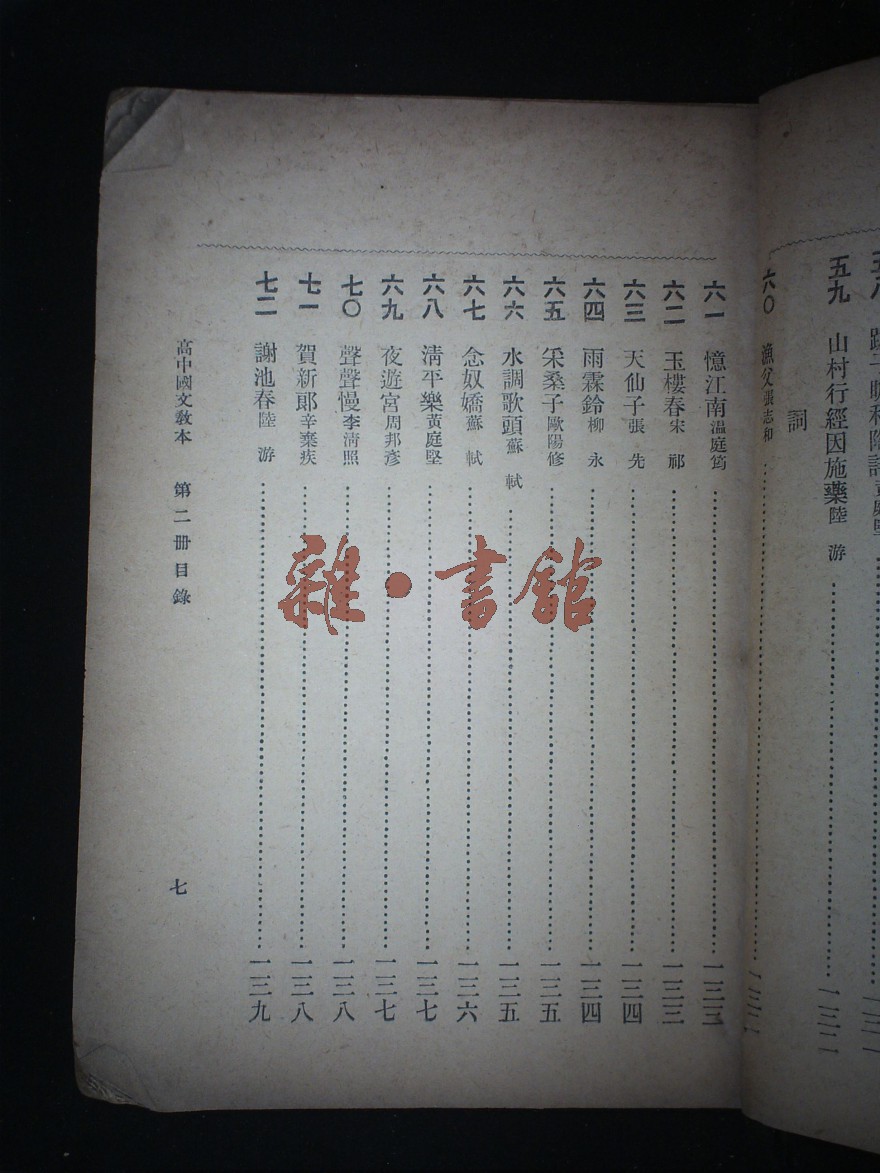 五九 山村行經因施藥 陸游 一三二
詞
六〇 漁父 張志和
六一 憶江南 溫庭筠 一三三
六二 玉樓春 宋祁 一三三
六三 天仙子 張先 一三四
六四 雨霖鈴 柳永 一三四
六五 采桑子 歐陽修 一三五
六六 水調歌頭 蘇軾 一三五
六七 念奴嬌 蘇軾 一三六
六八 清平樂 黃庭堅 一三七
六九 夜遊宮 周邦彥 一三七
七〇 聲聲慢 李清照 一三八
七一 賀新郎 辛棄疾 一三八
七二 謝池春 陸游 一三九
高中國文教本 第二冊目錄 七
雜·書館